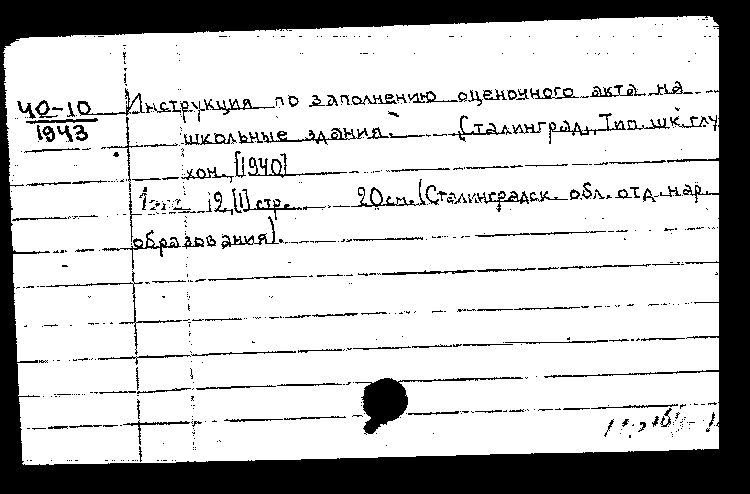 40-10
1943
Инструкция по заполнению оценочного акта на
школьные здания. Сталинград, Тип. шк. глу
хон., [1940]
1 экз. 12,[1] стр. 20см. (Сталинградск. обл. отд. нар.
образования).